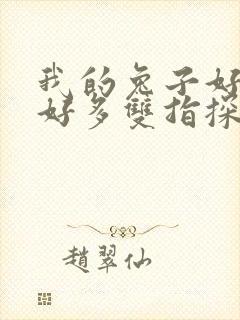 我的兔子好
好多雙指探
趙翠仙